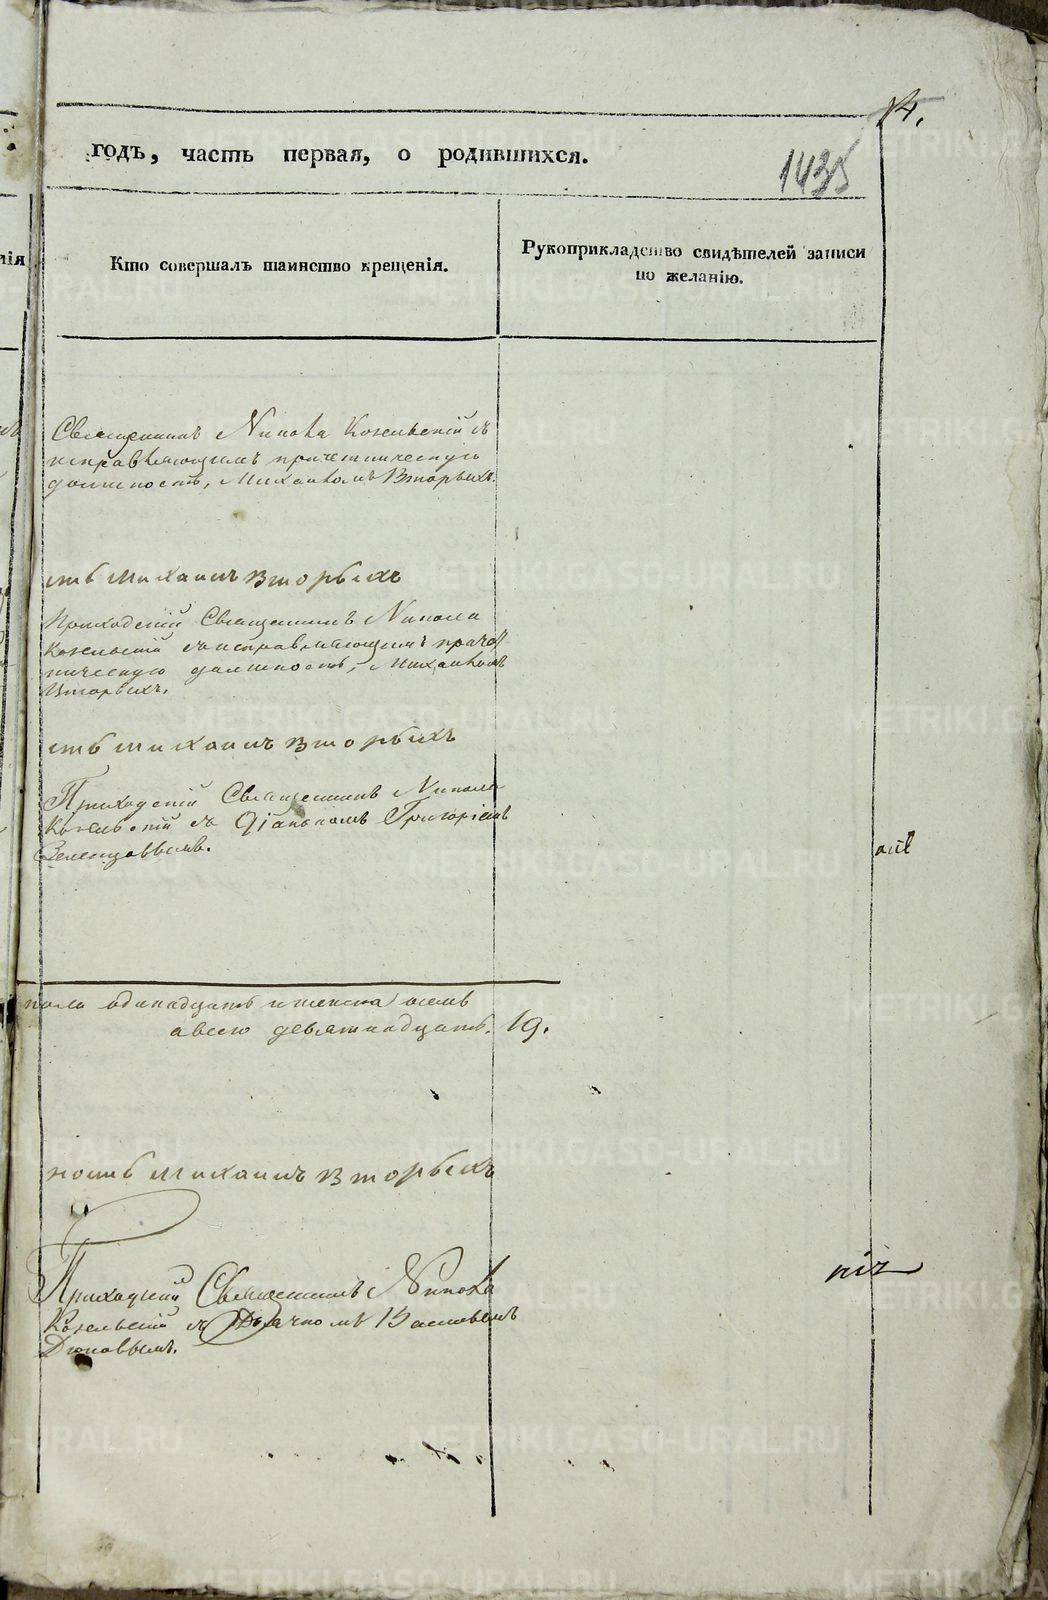 14.
годъ, часть первая, о родившихся.
1435
нія
Кто совершалъ таинство крещенія.
Рукоприкладство свидѣтелей записи
по желанію.
Священникъ Никола Козельскій съ
исправляющимъ причетническую
должность, Михаиломъ Вторыхъ.
сть Михаилъ Вторыхъ
Приходскій Священникъ Никола
Козельскій съ исправляющимъ причет
ническую должность, Михаиломъ
Вторыхъ.
сть Михаилъ Вторыхъ
Приходскій Священникъ Никола
Козельскій съ Діакономъ Григоріемъ
Зеленцовымъ.
пола одинадцать и женска осмь
а всего девятнадцать. 19.
ность Михаилъ Вторыхъ
Приходскій Священникъ Никола
Козельскій съ Дьячкомъ Васильемъ
Дюковымъ.
METRIKI.GASO-URAL.RU